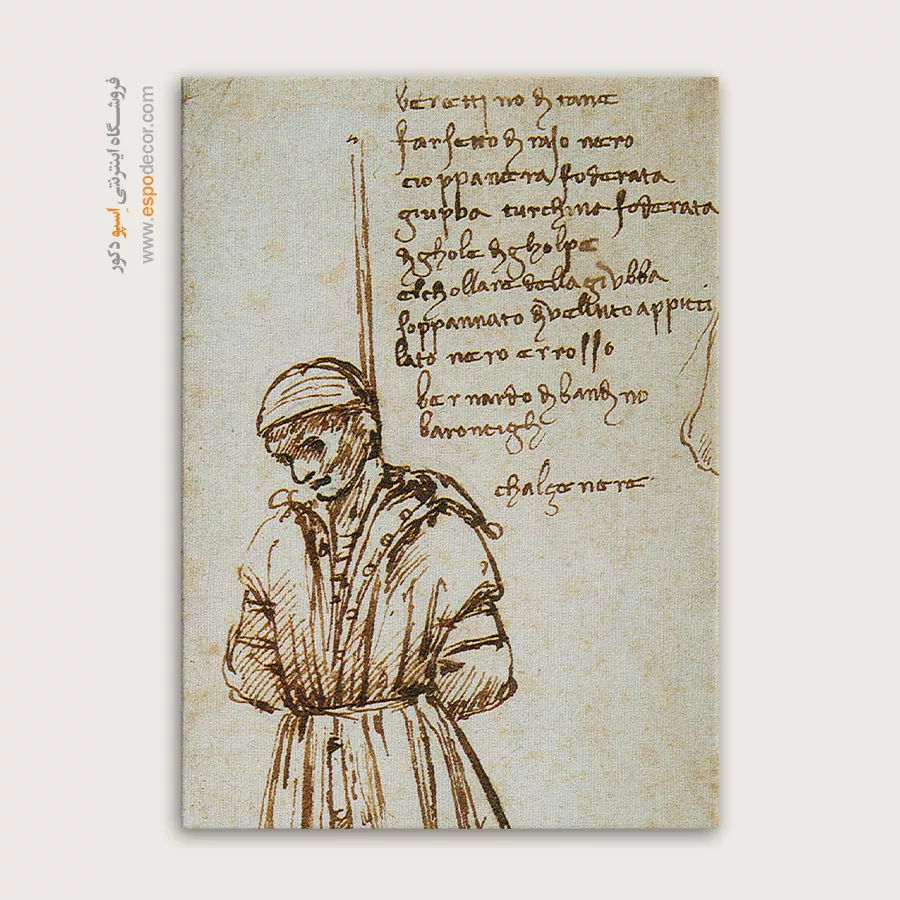 berettino di tane
farsetto di raso nero
cioppa nera foderata
giubba turchina foderata
di ghole di gholpe
elchollare della giubba
soppannato di velluto appicci
lato nero e rosso
bernardo di bandino
barontigli
chalze nere
فروشگاه اینترنتی اسپو دکور
www.espodecor.com